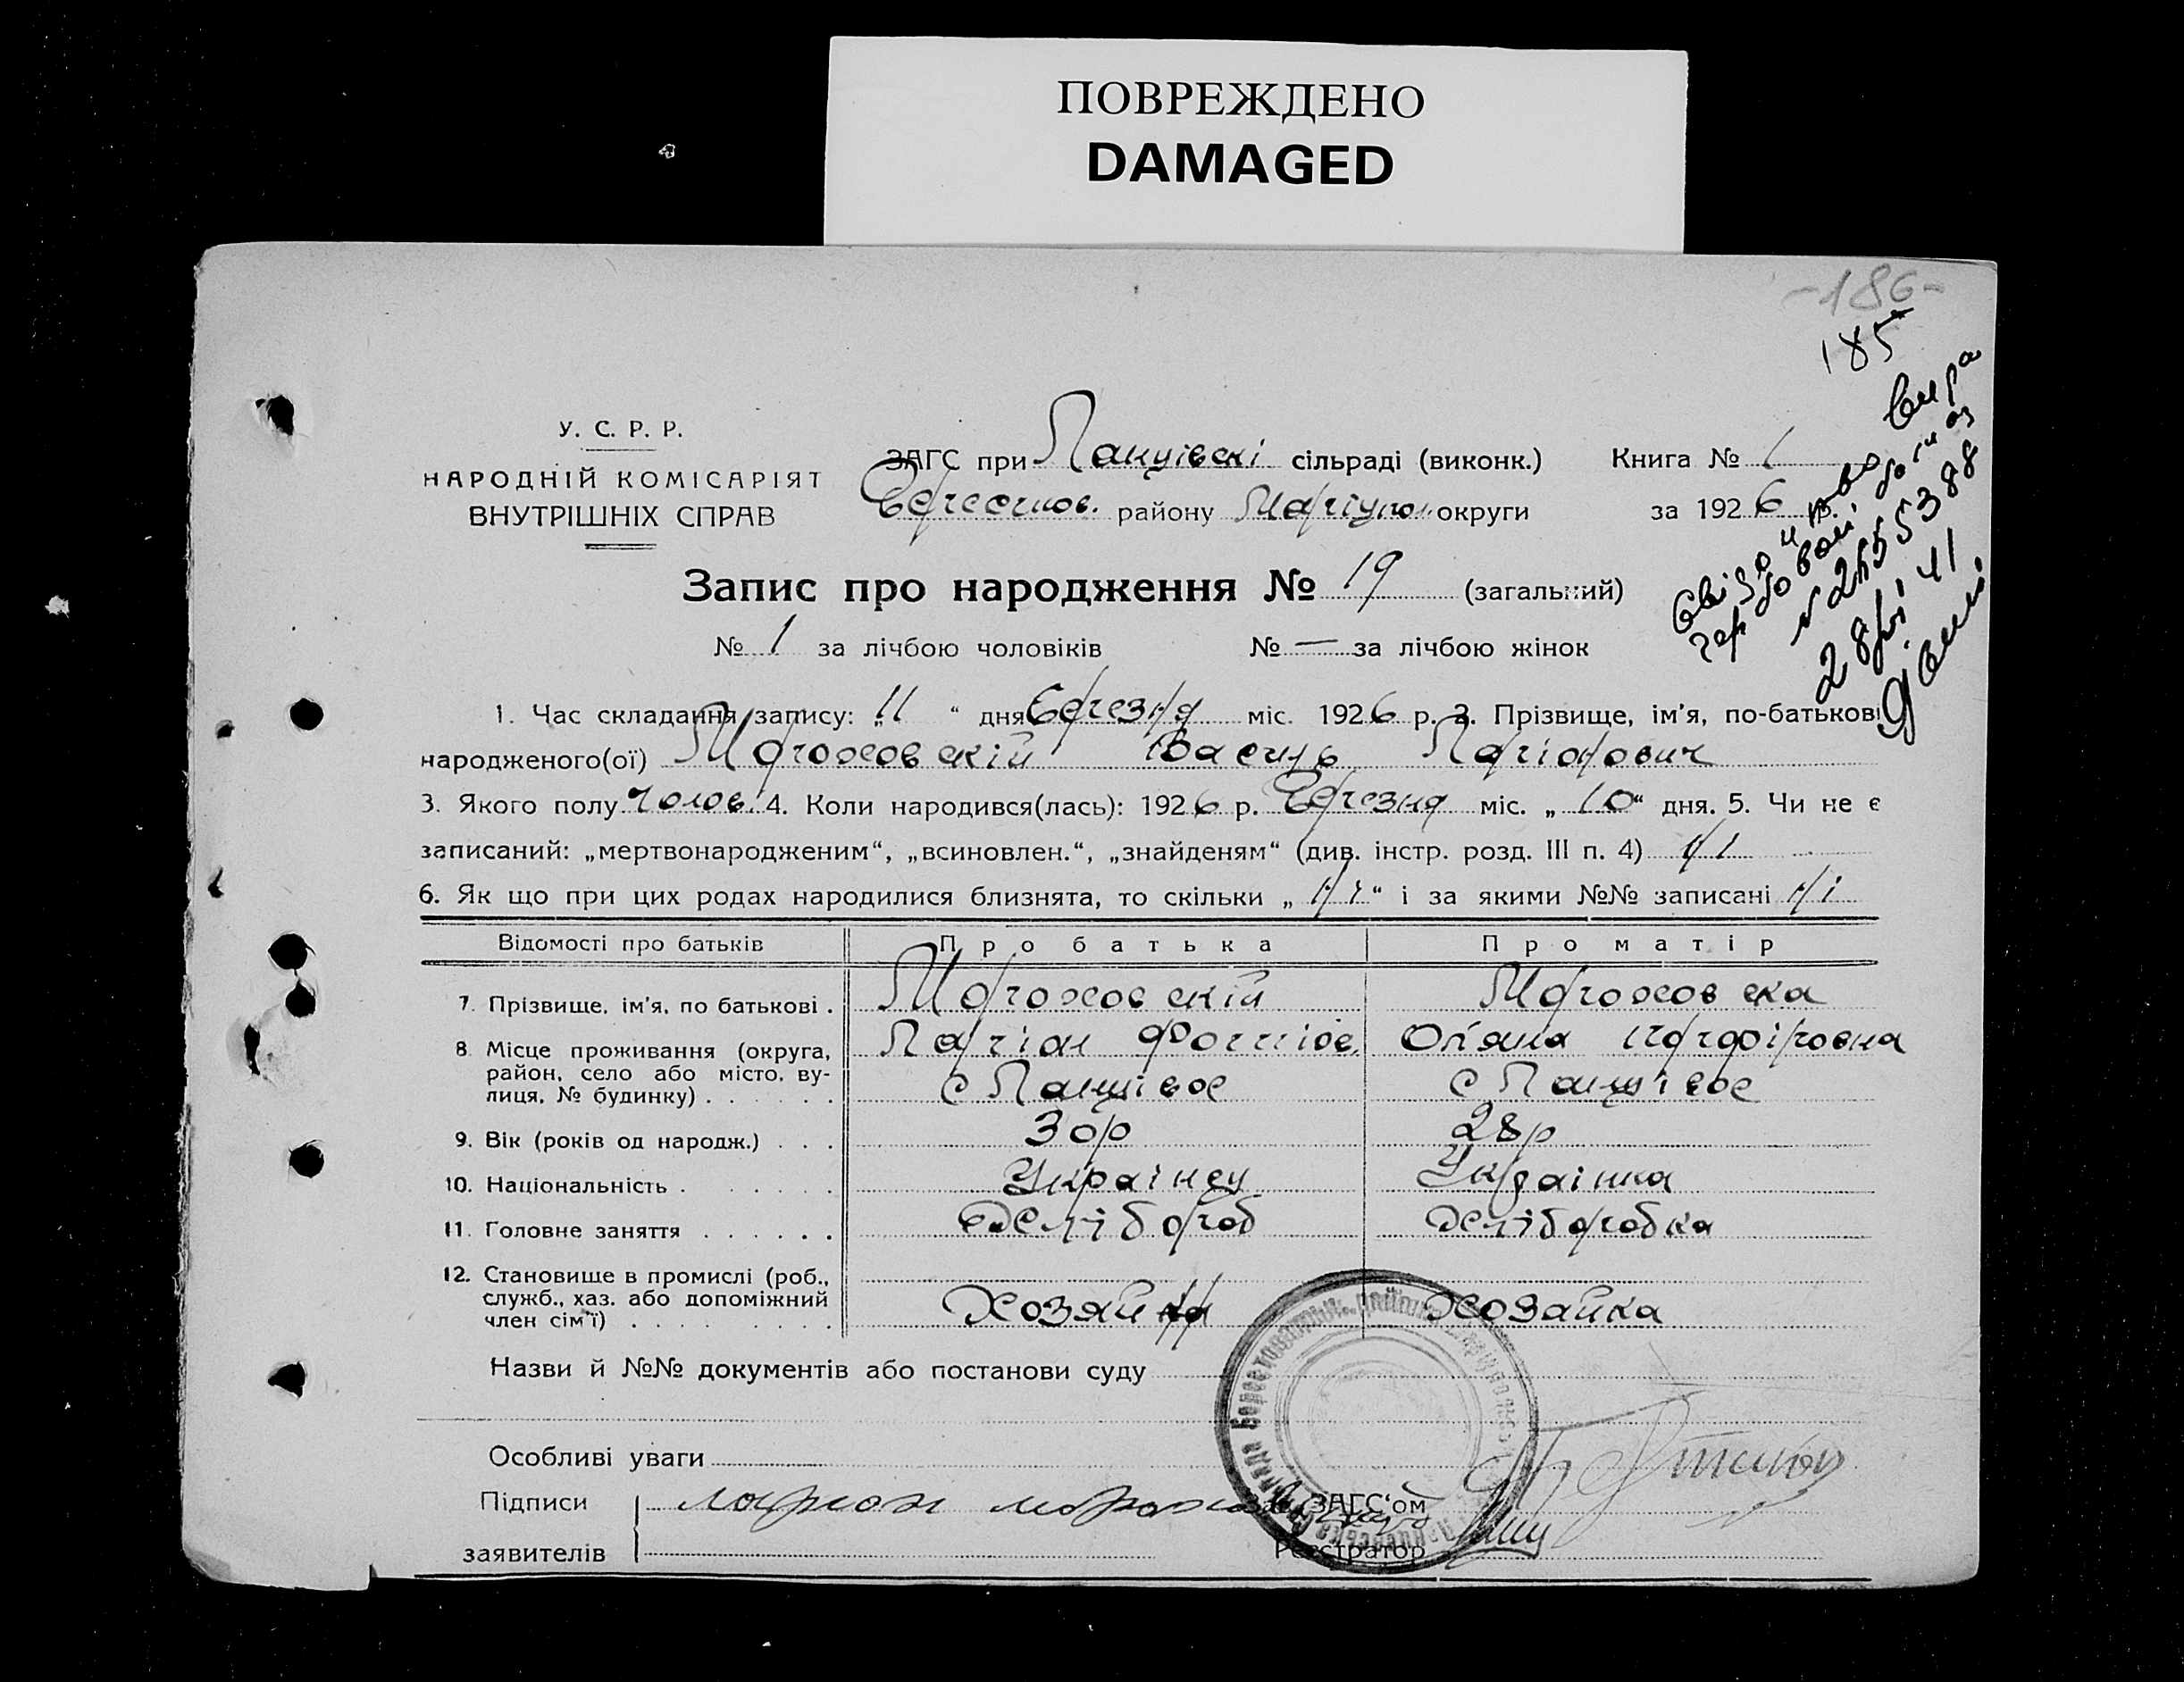 ПОВРЕЖДЕНО
DAMAGED
-186-
185
У. С. Р. Р.
НАРОДНІЙ КОМІСАРІЯТ
ВНУТРІШНІХ СПРАВ
ЗАГС при Ланцівскі сільраді (виконк.) Книга № 1
Берестов. району Маріупол. округи за 1926 р.
Запис про народження № 19 (загальний)
№ 1 за лічбою чоловіків № — за лічбою жінок
1. Час складання запису: „11“ дня Березня міс. 1926 р. 2. Прізвище, ім’я, по-батькові
народженого(ої) Мороховскій Василь Ларіонович
3. Якого полу Чолов. 4. Коли народився(лась): 1926 р. Березня міс. „10“ дня. 5. Чи не є
записаний: „мертвонародженим“, „всиновлен.“, „знайденям“ (див. інстр. розд. III п. 4) Ні
6. Як що при цих родах народилися близнята, то скільки „Ні“ і за якими №№ записані Ні
Відомості про батьків Про батька Про матір
7. Прізвище, ім’я, по батькові . Мороховскій Мороховска
8. Місце проживання (округа, Ларіон
район, село або місто, ву-
лиця, № будинку) . . . . . .
9. Вік (років од народж.) . . . 30р 28р
10. Національність . . . . . . Українец Українка
11. Головне заняття . . . . . . Хлібороб Хліборобка
12. Становище в промислі (роб.,
служб., хаз. або допоміжний Хозяйн Хозайка
член сім’ї) . . . . . . . .
Назви й №№ документів або постанови суду
Особливі уваги
Підписи
заявителів
ЗАГС‘ом
Реєстратор